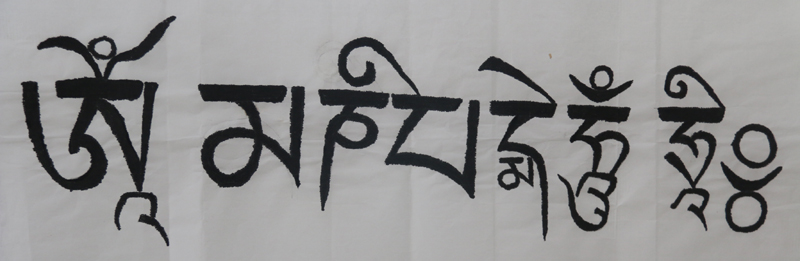 ༀ མ ཎི པ དྨེ ཧཱུྃ ཧྲཱིཿ